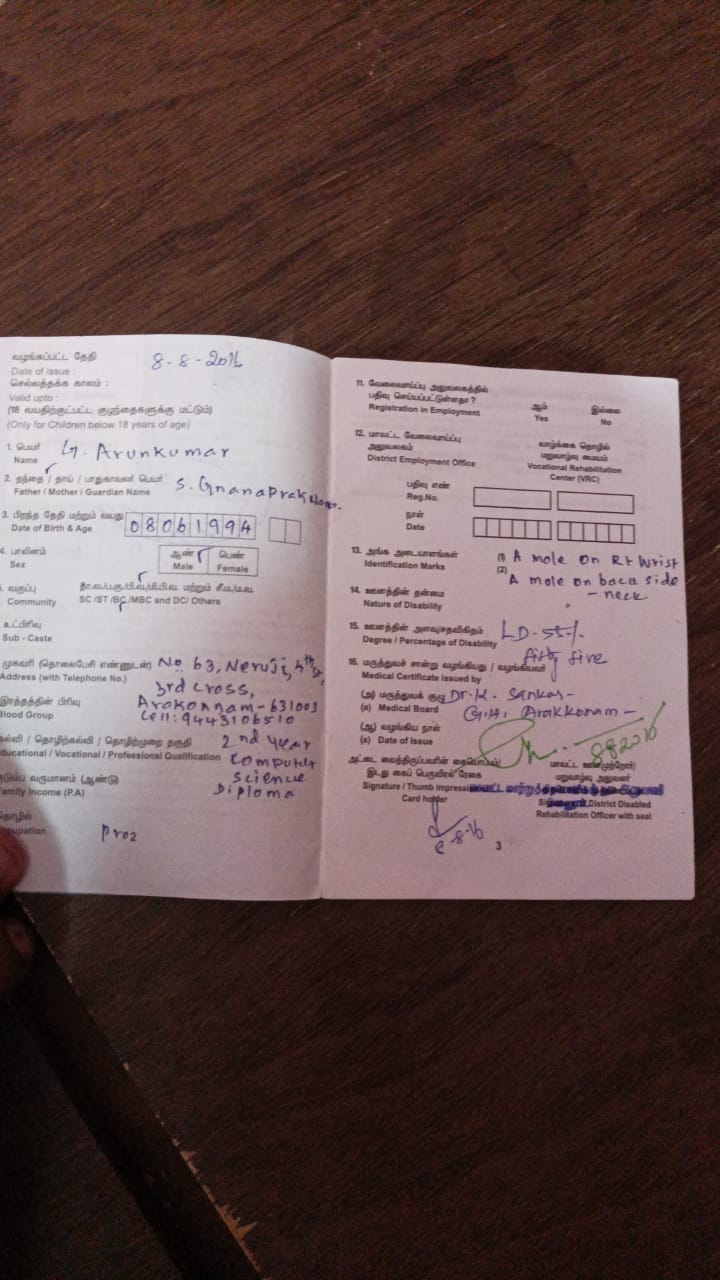 வழங்கப்பட்ட தேதி
Date of issue :
8-8-2016
செல்லத்தக்க காலம் :
Valid upto :
(18 வயதிற்குட்பட்ட குழந்தைகளுக்கு மட்டும்)
(Only for Children below 18 years of age)
1. பெயர்
Name
G. Arunkumar
2. தந்தை / தாய் / பாதுகாவலர் பெயர்
Father / Mother / Guardian Name
3. பிறந்த தேதி மற்றும் வயது
Date of Birth & Age
08061994
4. பாலினம்
Sex
ஆண் பெண்
Male Female
வகுப்பு
Community
SC /ST /BC/MBC and DC/ Others
உட்பிரிவு
Sub - Caste
முகவரி (தொலைபேசி எண்ணுடன்)
Address (with Telephone No.)
No 63, Neruji, 4th St,
3rd Cross,
Arakonnam - 631003
Cell: 9443106510
இரத்தத்தின் பிரிவு
Blood Group
கல்வி / தொழிற்கல்வி / தொழிற்முறை தகுதி
Educational / Vocational / Professional Qualification
2nd year
Computer
Science
Diploma
குடும்ப வருமானம் (ஆண்டு)
Family Income (P.A)
தொழில்
11. வேலைவாய்ப்பு அலுவலகத்தில்
பதிவு செய்யப்பட்டுள்ளதா ?
Registration in Employment
ஆம் இல்லை
Yes No
12. மாவட்ட வேலைவாய்ப்பு
அலுவலகம்
District Employment Office
வாழ்க்கை தொழில்
மறுவாழ்வு மையம்
Vocational Rehabilitation
Center (VRC)
பதிவு எண்
Reg.No.
நாள்
Date
13. அங்க அடையாளங்கள்
Identification Marks
(1) A mole on Rt wrist
(2) A mole on baca side
- neck
14. ஊனத்தின் தன்மை
Nature of Disability
15. ஊனத்தின் அளவு/சதவிகிதம்
Degree / Percentage of Disability
LD-55%
fifty five
16. மருத்துவச் சான்று வழங்கியது / வழங்கியவர்
Medical Certificate issued by
(அ) மருத்துவக் குழு
(a) Medical Board
Dr. K. Sankar -
G.H. Arakkonam -
(ஆ) வழங்கிய நாள்
(a) Date of Issue
882016
அட்டை வைத்திருப்பவரின் கையொப்பம்/
இடது கைப் பெருவிரல் ரேகை
Signature / Thumb impression
Card holder
8-16
மாவட்ட ஊனமுற்றோர்
மறுவாழ்வு அலுவலர்
District Disabled
Rehabilitation Officer with seal
3